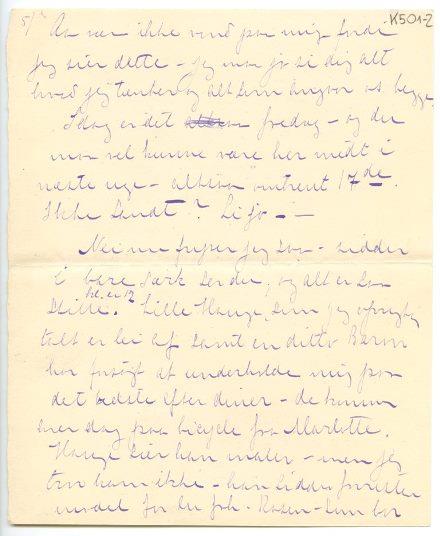 5/
K501-2
Aa vær ikke vred paa mig fordi
jeg siér dette – jeg maa jo si dig alt
hvad jeg tænker og alt som angaar os begge.
Idag er det fredag – og du
maa vel kunne være her midt i
næste uge – altsaa omtrent 17de.
Ikke sandt? Si jo – –
Nei nu fryser jeg saa – sidder
i bare særk ser du, og alt er saa
stille. kl. er 12 Lille Hauge, som jeg oprigtig
talt er lei af samt en ditto Baron
har forsøgt at underholde mig paa
det bedste efter diner – de kommer
hver dag paa bicycle fra Marlotte.
Hauge siér han maler – men jeg
tror ham ikke – han sidder
model for du frk. Rosen – som bor